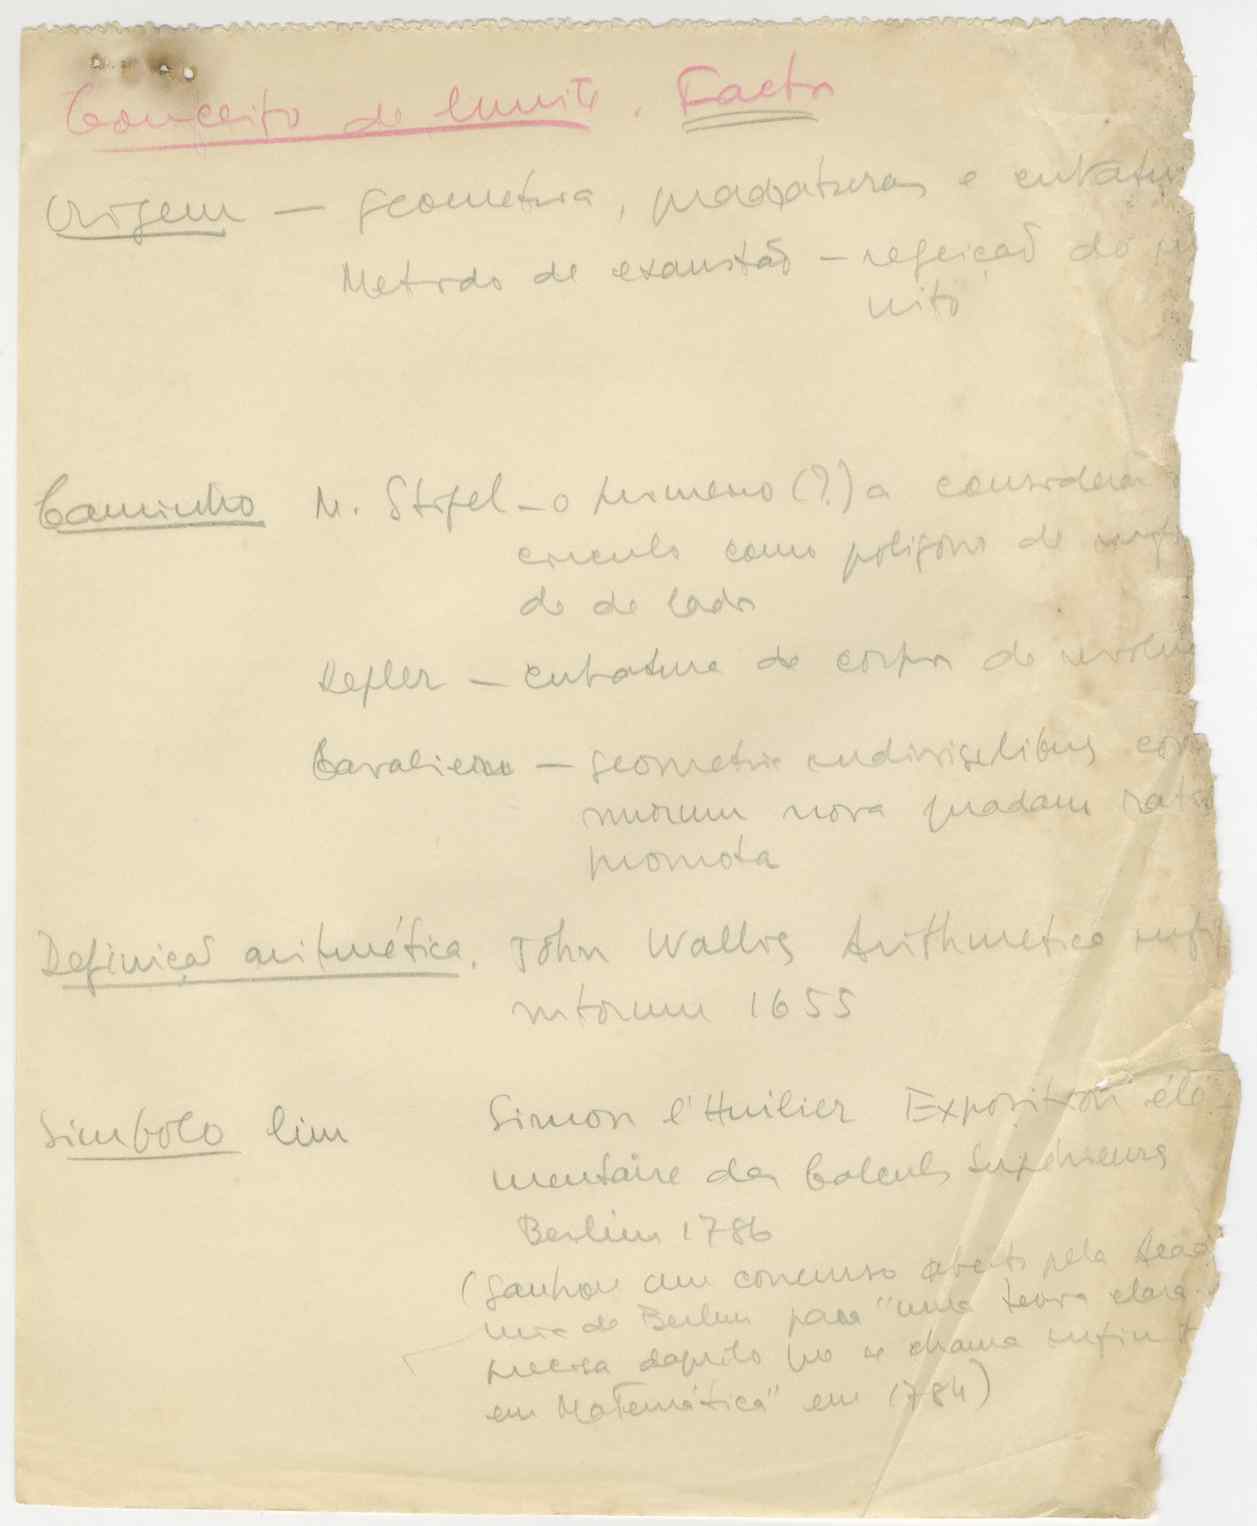 Conceito de limite. Factos
Origem — geometria, quadraturas e cubatu
Metodo de exaustão — rejeição do
nito
Caminho M. Stifel — o primeiro (?) a considerar
circulo como poligono de
do de lados
Kepler — cubatura de corpos de revolu
Cavalieri — geometria indivisilibus con
tinuorum nova quadam ratio
promota
Definição aritmética. John Wallis Arithmetica infi
nitorum 1655
Simbolo lim Simon l'Huilier Exposition élé-
mentaire des Calculs Supérieurs
Berlim 1786
(ganhou um concurso aberto pela Acad
mia de Berlim para "uma teoria clara
precisa daquilo que se chama infinit
em Matemática" em 1784)